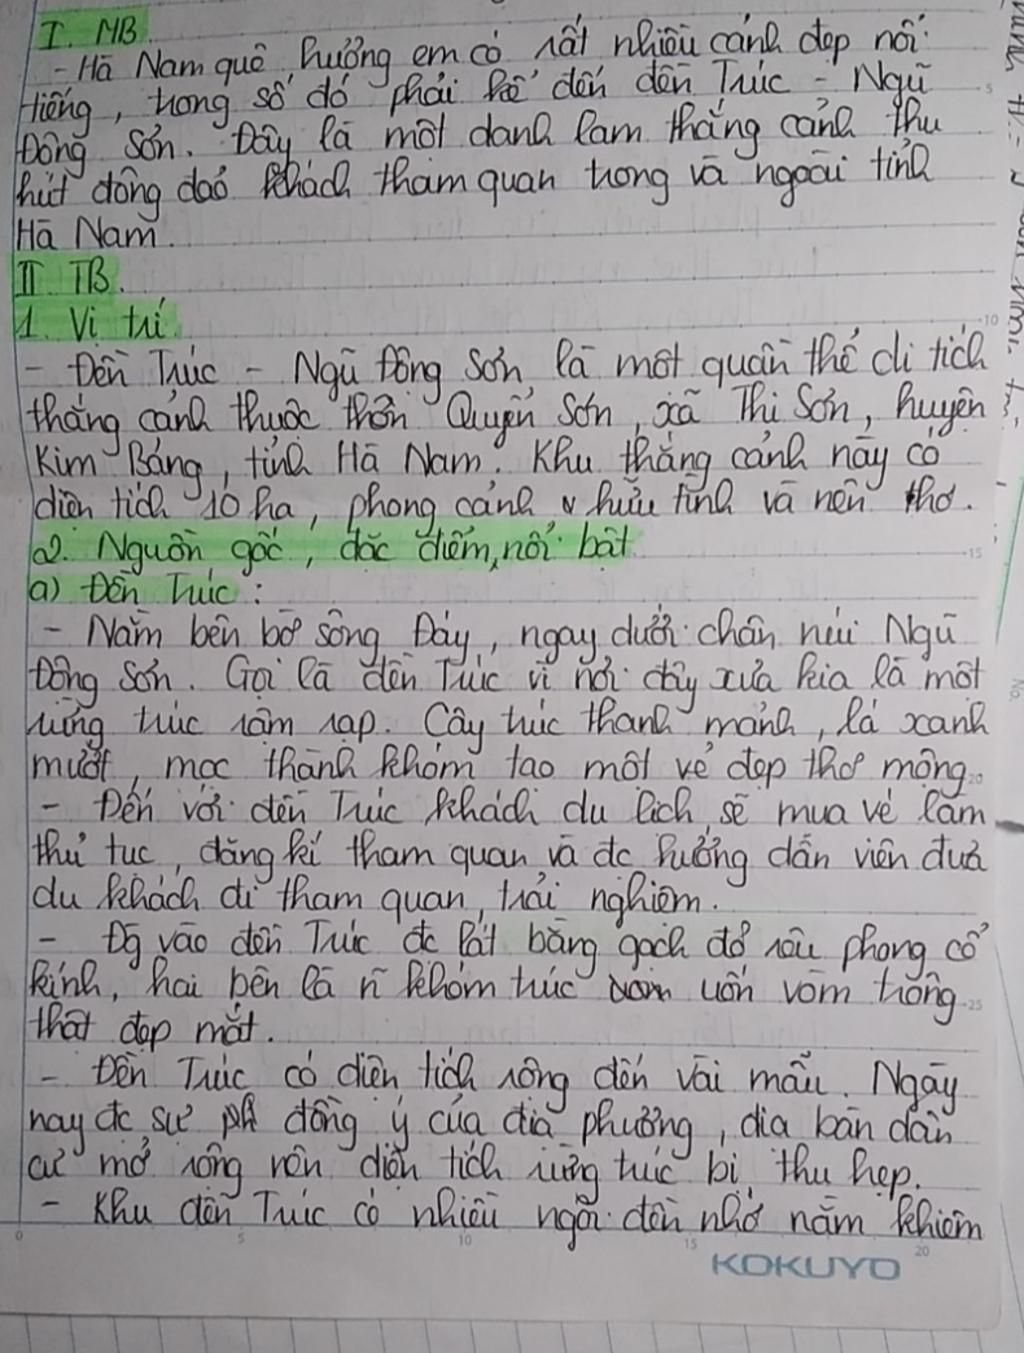 I. MB
- Hà Nam quê hương em có rất nhiều cảnh đẹp nổi
tiếng, trong số đó phải kể đến đền Trúc - Ngũ
Động Sơn. Đây là một danh lam thắng cảnh thu
hút đông đảo khách tham quan trong và ngoài tỉnh
Hà Nam.
II TB.
1. Vị trí
- Đền Trúc - Ngũ Động Sơn là một quần thể di tích
thắng cảnh thuộc thôn Quyển Sơn, xã Thi Sơn, huyện
Kim Bảng, tỉnh Hà Nam. Khu thắng cảnh này có
diện tích 10 ha, phong cảnh hữu tình và nên thơ.
2. Nguồn gốc, đặc điểm, nổi bật
a) Đền Trúc:
- Nằm bên bờ sông Đáy, ngay dưới chân núi Ngũ
Động Sơn. Gọi là đền Trúc vì nơi đây xưa kia là một
rừng trúc rậm rạp. Cây trúc thanh mảnh, lá xanh
mướt, mọc thành khóm tạo một vẻ đẹp thơ mộng.
- Đến với đền Trúc khách du lịch sẽ mua vé làm
thủ tục, đăng kí tham quan và đc hướng dẫn viên đưa
du khách đi tham quan, trải nghiệm.
- Đg vào đền Trúc đc lát bằng gạch đỏ rêu phong cổ
kính, hai bên là n~ khóm trúc uốn vòm trông
thật đẹp mắt.
- Đền Trúc có diện tích rộng đến vài mẫu. Ngày
nay đc sự đồng ý của địa phương, địa bàn dân
cư mở rộng nên diện tích rừng trúc bị thu hẹp.
- Khu đền Trúc có nhiều ngôi đền nhỏ nằm khiêm
KOKUYO